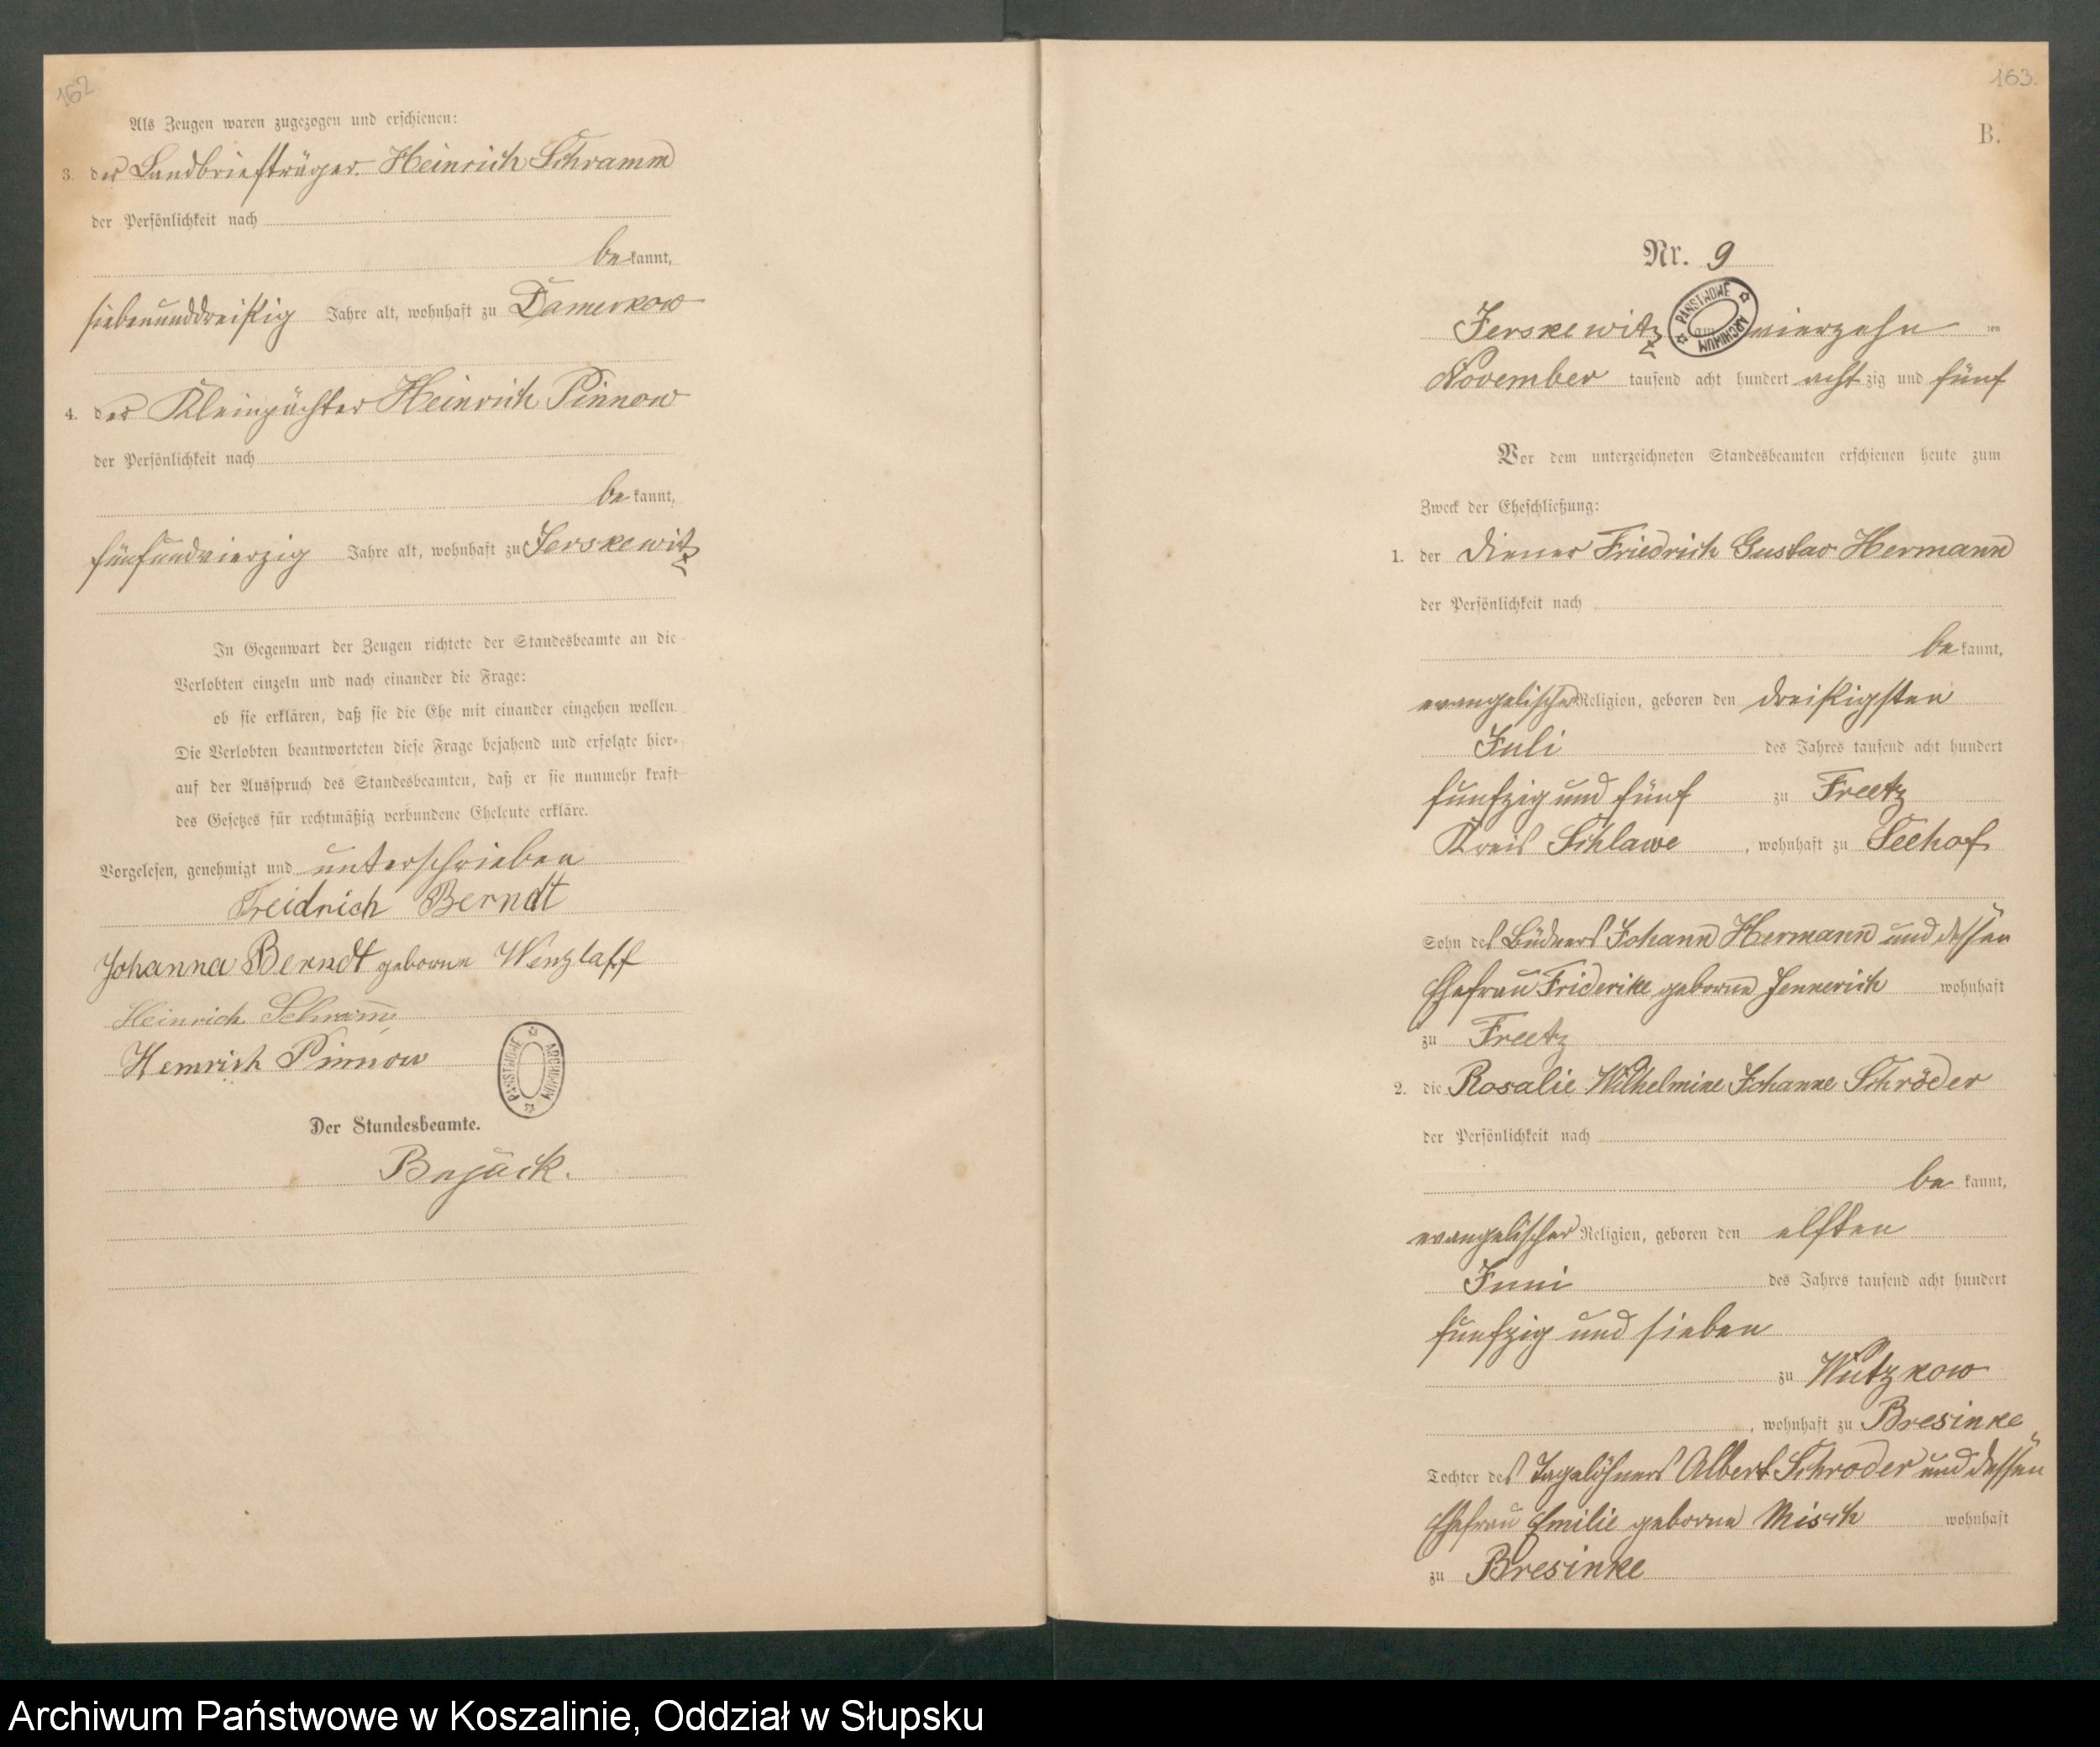 162
Als Zeugen waren zugezogen und erschienen:
3. der Landbriefträger Heinrich Schramm
der Persönlichkeit nach
bekannt,
siebenunddreißig Jahre alt, wohnhaft zu Damerkow
4. der Kleinpächter Heinrich Pinnow
der Persönlichkeit nach
bekannt,
fünfundvierzig Jahre alt, wohnhaft zu Jerskewitz
In Gegenwart der Zeugen richtete der Standesbeamte an die
Verlobten einzeln und nach einander die Frage:
ob sie erklären, daß sie die Ehe mit einander eingehen wollen.
Die Verlobten beantworteten diese Frage bejahend und erfolgte hier-
auf der Ausspruch des Standesbeamten, daß er sie nunmehr kraft
des Gesetzes für rechtmäßig verbundene Eheleute erkläre.
Vorgelesen, genehmigt und unterschrieben
Freidrich Berndt
Johanna Berndt geborne Wenzlaff
Heinrich Schramm
Heinrich Pinnow
PAŃSTWOWE ARCHIWUM
Der Standesbeamte.
163.
B.
Nr. 9
Jerskewitz am vierzehn ten
PAŃSTWOWE ARCHIWUM
November tausend acht hundert achtzig und fünf
Vor dem unterzeichneten Standesbeamten erschienen heute zum
Zweck der Eheschließung:
1. der Diener Friedrich Gustav Hermann
der Persönlichkeit nach
bekannt,
evangelischer Religion, geboren den dreißigsten
Juli des Jahres tausend acht hundert
funfzig und fünf zu Freetz
Kreis Schlawe, wohnhaft zu Seehof
Sohn des Büdners Johann Hermann und dessen
Ehefrau Friderike geborne Jennerich wohnhaft
zu Freetz
2. die Rosalie Wilhelmine Johanne Schröder
der Persönlichkeit nach
bekannt,
evangelischer Religion, geboren den elften
Juni des Jahres tausend acht hundert
funfzig und sieben
zu Wutzkow
, wohnhaft zu Bresinke
Tochter des Tagelöhners Albert Schröder und dessen
Ehefrau Emilie geborne Misch wohnhaft
zu Bresinke
Archiwum Państwowe w Koszalinie, Oddział w Słupsku